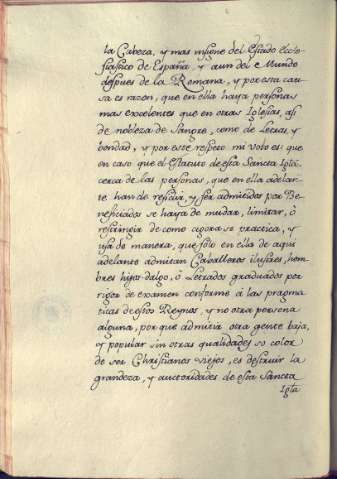 la Cabeza, y mas insigne del Estado Ecle-
siastico de España, y aun del Mundo
despues de la Romana, y por esta cau-
sa es razon, que en ella haya personas
mas excelentes que en otras Iglesias, asi
de nobleza de Sangre, como de Letras, y
bondad, y por este respeto mi voto es: que
en caso que el Estatuto de esta Sancta Iglã.
cerca de las personas, que en ella adelan-
te han de residir, y ser admitidos por Be-
neficiados se haya de mudar, limitar, ó
restringir de como agora se practica, y
usa de manera, que sólo en ella de aqui
adelante admitan Cavalleros ilustres, hom-
bres hijos-dalgo, ó Letrados graduados por
rigor de examen conforme á las pragma-
ticas de estos Reynos, y no otra persona
alguna, porque admitir otra gente baja,
y popular sin otras qualidades so color
de ser Christianos viejos, es destruir la
grandeza, y auctoridades de esta Sancta
Iglã